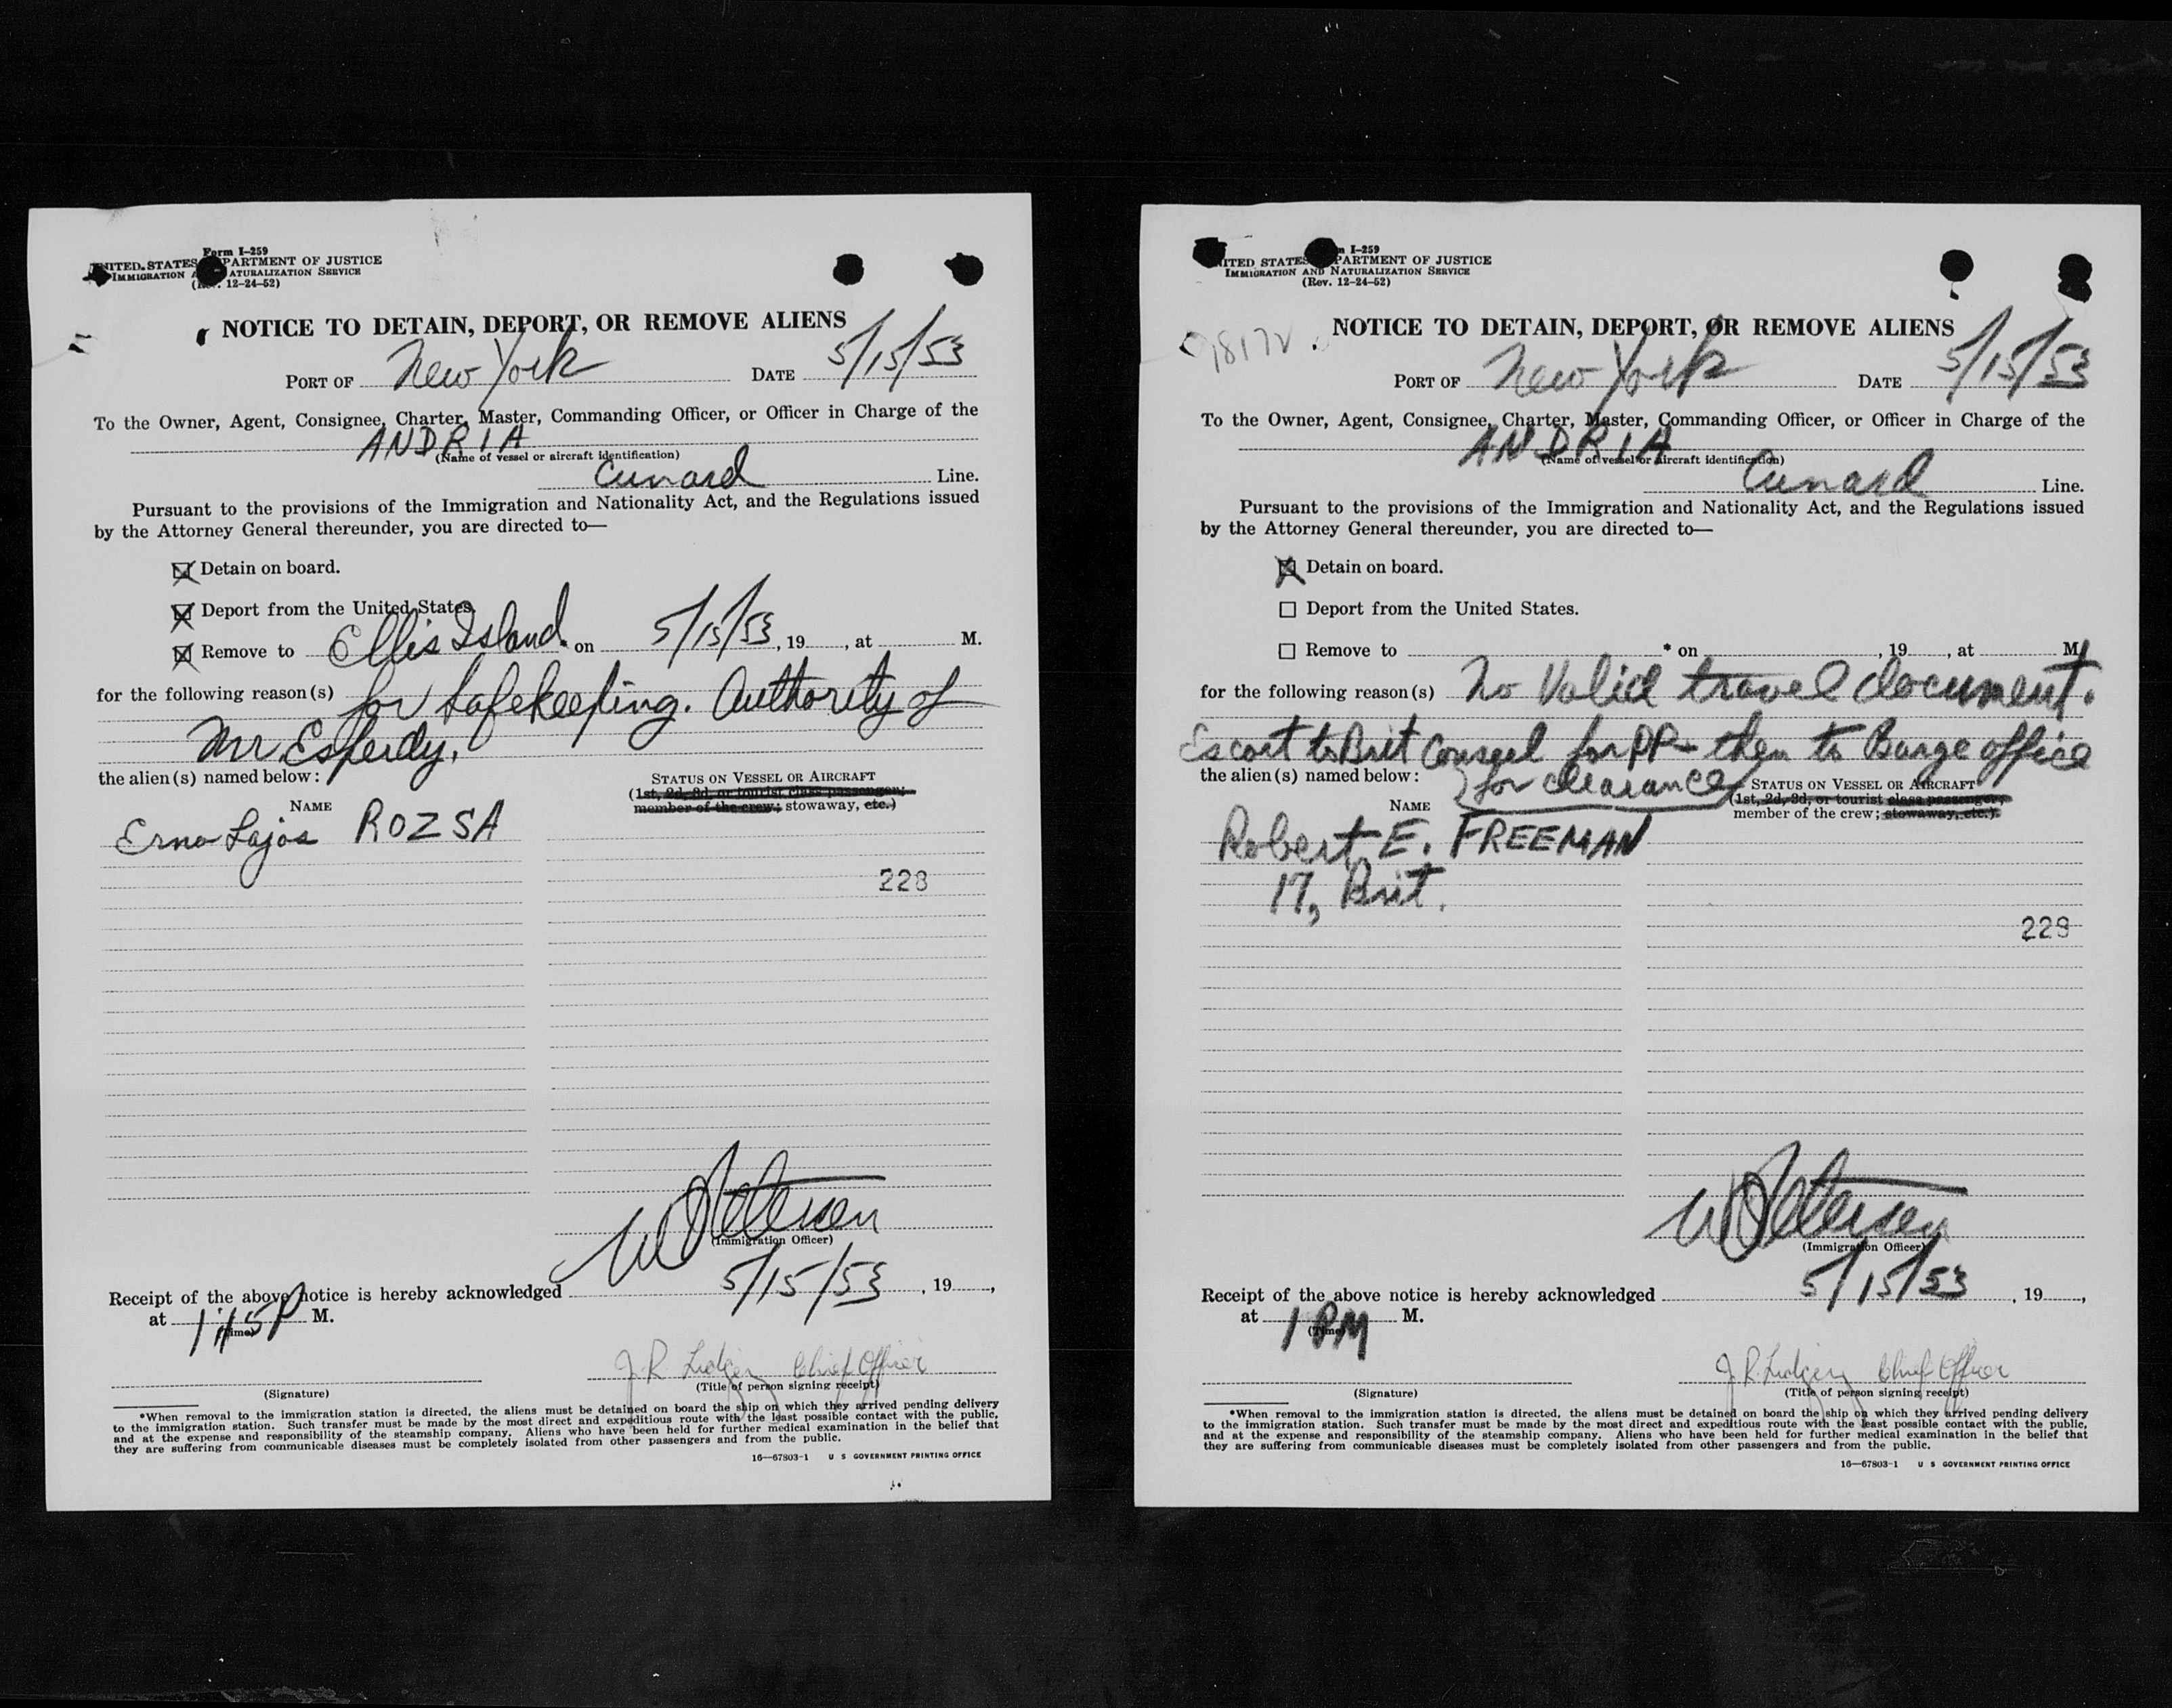 Form I-259
UNITED STATES DEPARTMENT OF JUSTICE
IMMIGRATION AND NATURALIZATION SERVICE
(Rev. 12-24-52)
NOTICE TO DETAIN, DEPORT, OR REMOVE ALIENS
PORT OF New York DATE 5/15/53
To the Owner, Agent, Consignee, Charter, Master, Commanding Officer, or Officer in Charge of the
ANDRIA
(Name of vessel or aircraft identification)
Cunard Line.
Pursuant to the provisions of the Immigration and Nationality Act, and the Regulations issued
by the Attorney General thereunder, you are directed to—
☒ Detain on board.
☒ Deport from the United States.
☒ Remove to Ellis Island * on 5/15/53, 19, at M.
for the following reason(s) for safekeeping. Authority of
Mr Esperdy.
the alien(s) named below:
STATUS ON VESSEL OR AIRCRAFT
(1st, 2d, 3d, or tourist class passenger;
member of the crew; stowaway, etc.)
NAME
Erno Lajos ROZSA
228
W Petersen
(Immigration Officer)
Receipt of the above notice is hereby acknowledged 5/15/53, 19,
at 1:45P M.
(Time)
J. R. Chief Officer
(Signature) (Title of person signing receipt)
*When removal to the immigration station is directed, the aliens must be detained on board the ship on which they arrived pending delivery
to the immigration station. Such transfer must be made by the most direct and expeditious route with the least possible contact with the public,
and at the expense and responsibility of the steamship company. Aliens who have been held for further medical examination in the belief that
they are suffering from communicable diseases must be completely isolated from other passengers and from the public.
16—67803-1 U S GOVERNMENT PRINTING OFFICE
Form I-259
UNITED STATES DEPARTMENT OF JUSTICE
IMMIGRATION AND NATURALIZATION SERVICE
(Rev. 12-24-52)
NOTICE TO DETAIN, DEPORT, OR REMOVE ALIENS
PORT OF New York DATE 5/15/53
To the Owner, Agent, Consignee, Charter, Master, Commanding Officer, or Officer in Charge of the
ANDRIA
(Name of vessel or aircraft identification)
Cunard Line.
Pursuant to the provisions of the Immigration and Nationality Act, and the Regulations issued
by the Attorney General thereunder, you are directed to—
☒ Detain on board.
☐ Deport from the United States.
☐ Remove to * on , 19, at M.
for the following reason(s) No Valid travel document.
Escort to Brit Consul for PP - then to Barge office
for clearance
the alien(s) named below:
STATUS ON VESSEL OR AIRCRAFT
(1st, 2d, 3d, or tourist class passenger;
member of the crew; stowaway, etc.)
NAME
Robert E. FREEMAN
17, Brit.
229
W Petersen
(Immigration Officer)
Receipt of the above notice is hereby acknowledged 5/15/53, 19,
at 1 PM M.
(Time)
J. R. Chief Officer
(Signature) (Title of person signing receipt)
*When removal to the immigration station is directed, the aliens must be detained on board the ship on which they arrived pending delivery
to the immigration station. Such transfer must be made by the most direct and expeditious route with the least possible contact with the public,
and at the expense and responsibility of the steamship company. Aliens who have been held for further medical examination in the belief that
they are suffering from communicable diseases must be completely isolated from other passengers and from the public.
16—67803-1 U S GOVERNMENT PRINTING OFFICE